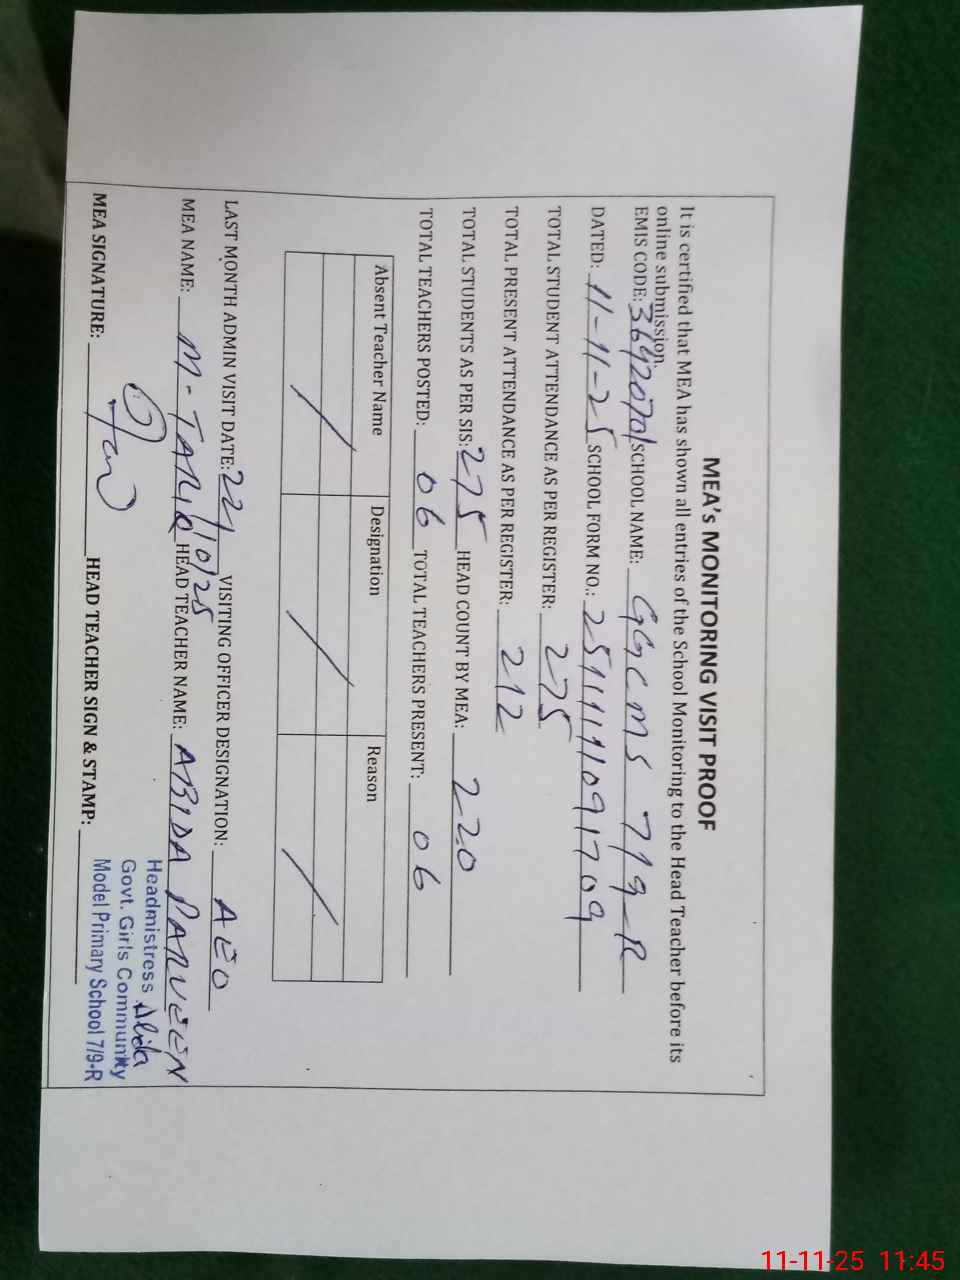 MEA's MONITORING VISIT PROOF
It is certified that MEA has shown all entries of the School Monitoring to the Head Teacher before its
online submission.
EMIS CODE: 36420701 SCHOOL NAME: GGCMS 7/9-R
DATED: 11-11-25 SCHOOL FORM NO.: 2511111091709
TOTAL STUDENT ATTENDANCE AS PER REGISTER: 275
TOTAL PRESENT ATTENDANCE AS PER REGISTER: 212
TOTAL STUDENTS AS PER SIS: 275 HEAD COUNT BY MEA: 220
TOTAL TEACHERS POSTED: 06 TOTAL TEACHERS PRESENT: 06
Absent Teacher Name Designation Reason
LAST MONTH ADMIN VISIT DATE: 22/10/25 VISITING OFFICER DESIGNATION: AEO
MEA NAME: M-TARIQ HEAD TEACHER NAME: ABIDA PARVEEN
MEA SIGNATURE: HEAD TEACHER SIGN & STAMP:
Abida
Headmistress
Govt. Girls Community
Model Primary School 7/9-R
11-11-25 11:45